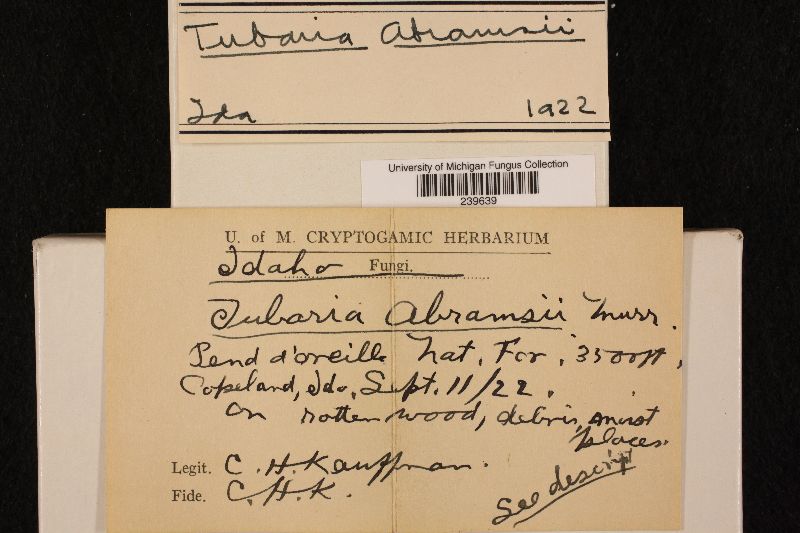 Tubaria Abramsii
Ida 1922
University of Michigan Fungus Collection
239639
U. of M. CRYPTOGAMIC HERBARIUM
Idaho Fungi.
Tubaria Abramsii Murr.
Pend d'oreille Nat. For. 3500 ft,
Copeland, Ida, Sept. 11/22.
On rotten wood, debris, moist
places.
Legit. C. H. Kauffman.
Fide. C. H. K.
See descrip